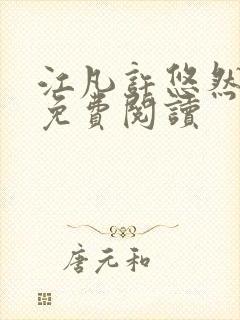 江凡許悠然
免費閱讀
唐元和